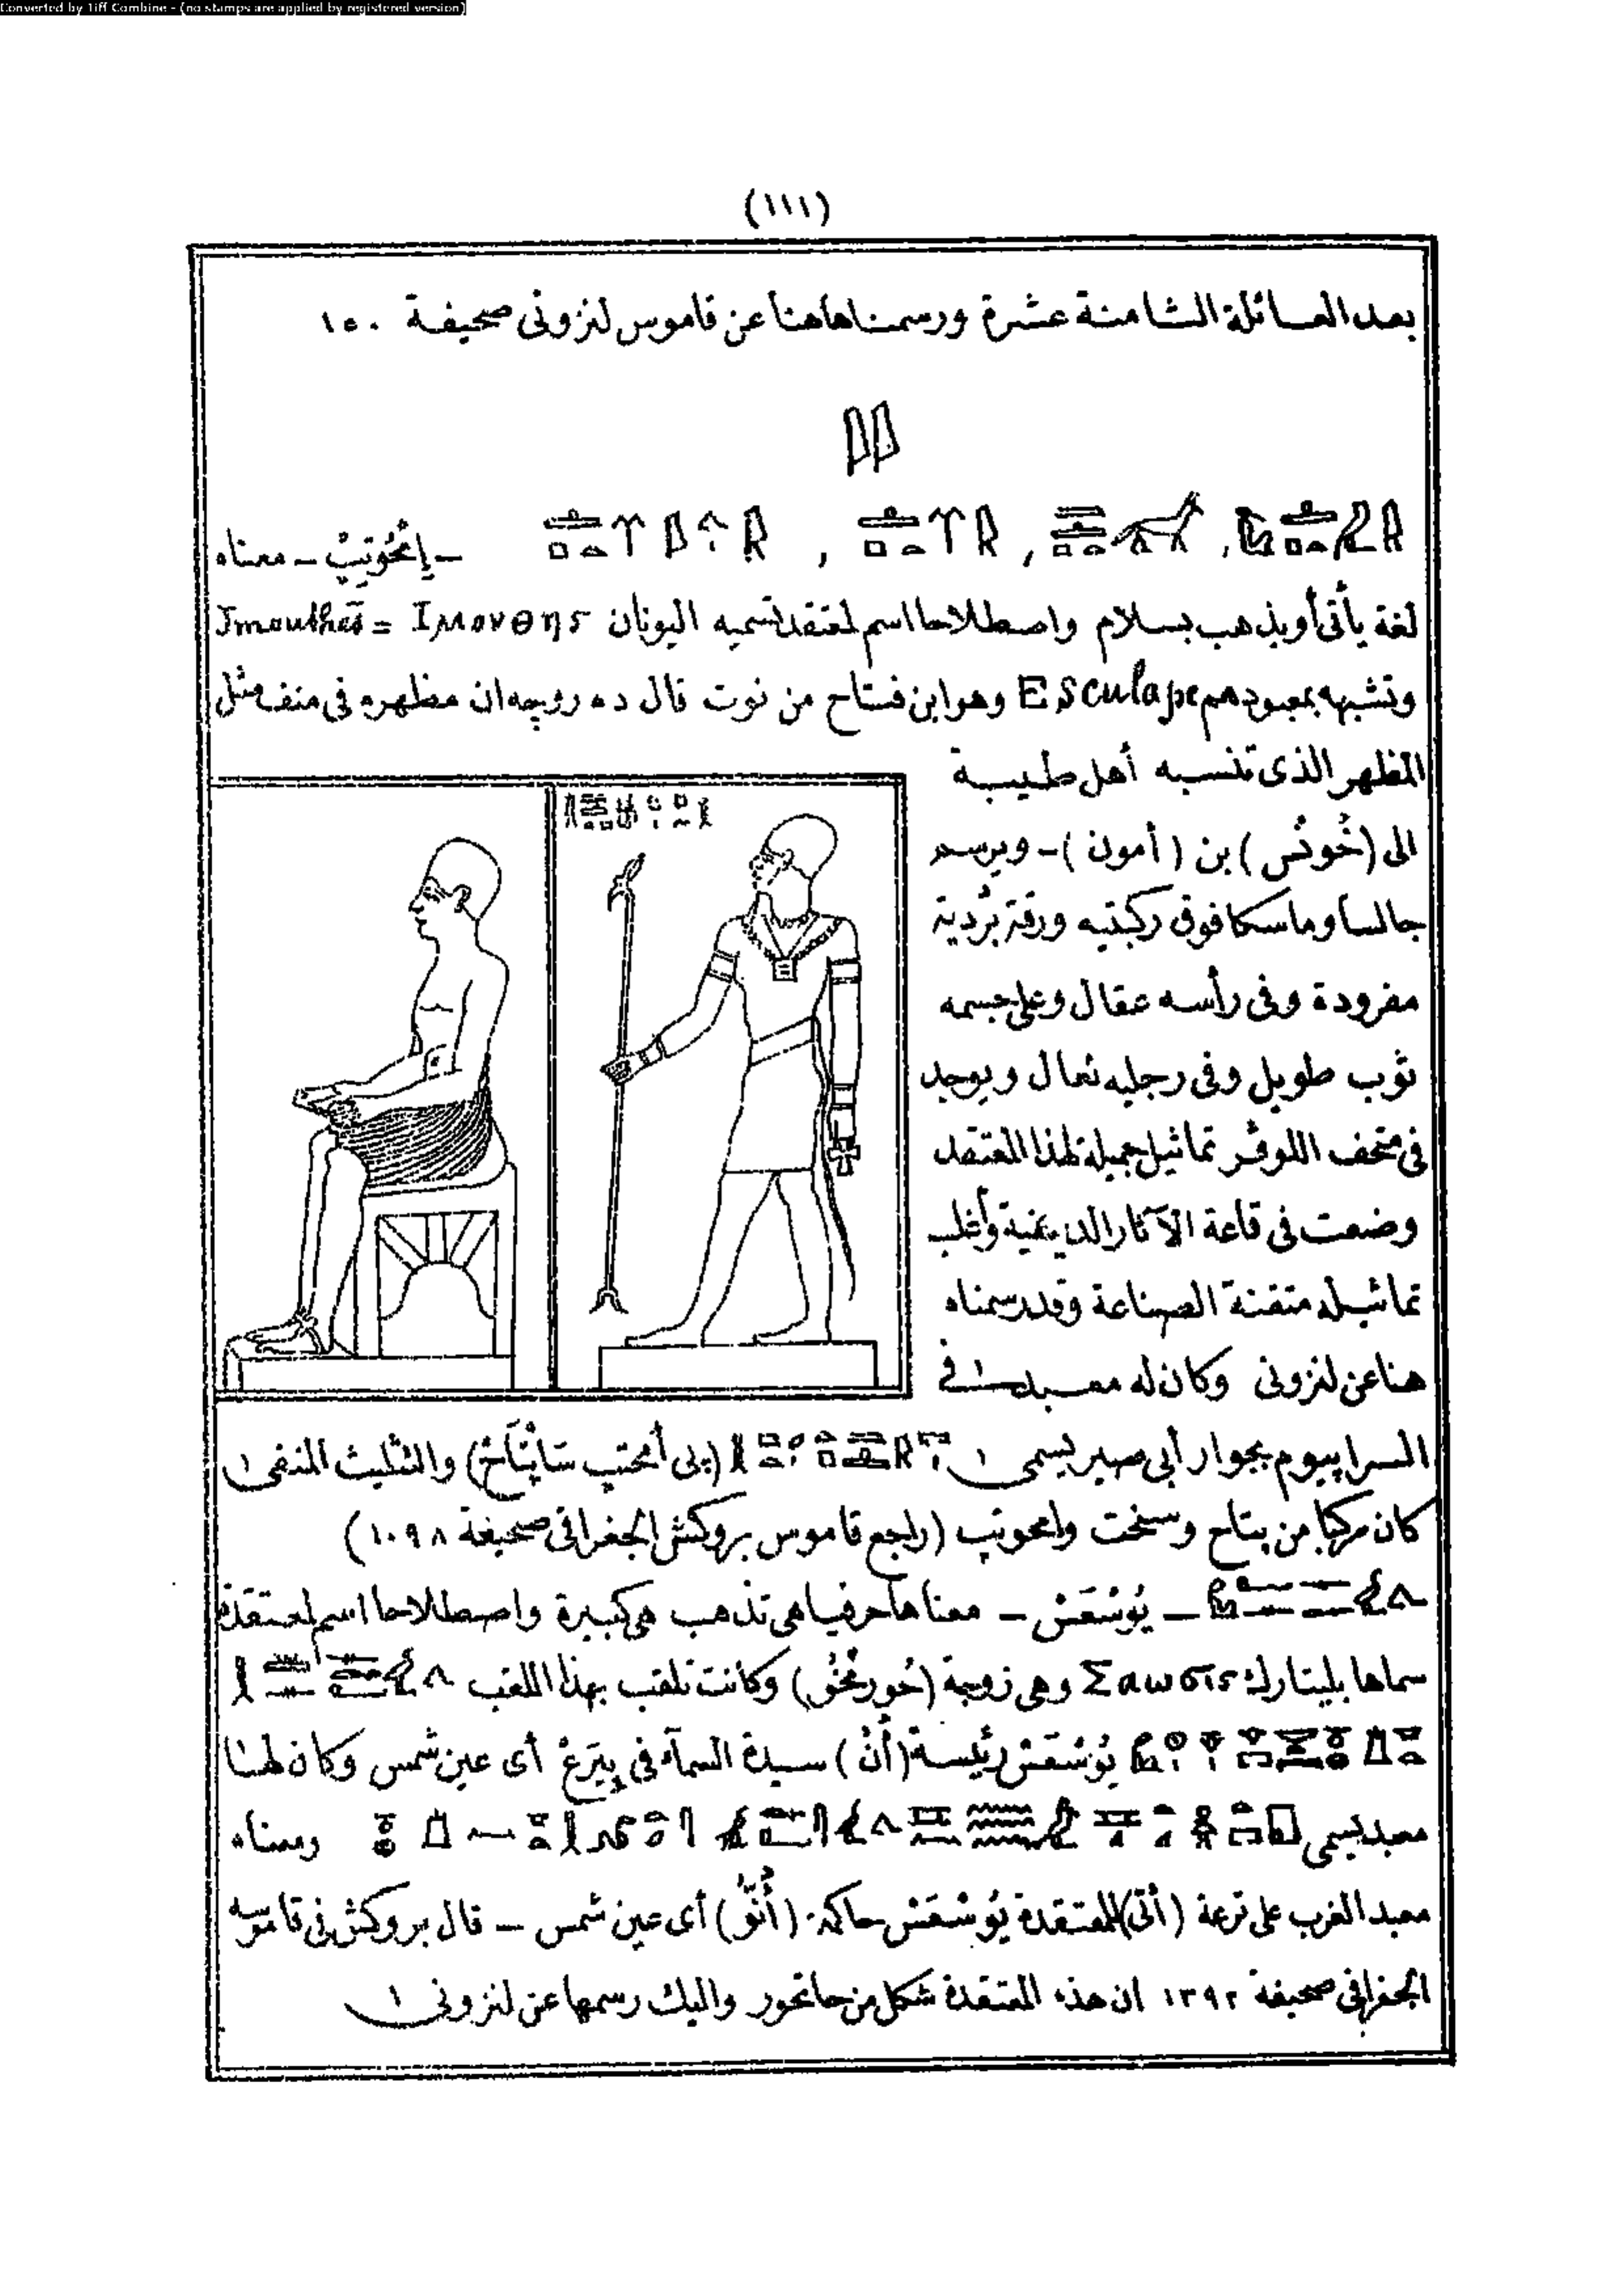 Converted by Tiff Combine - (no stamps are applied by registered version)
(١١١)
بعد العائلة الثامنة عشرة ورسمناها هنا عن قاموس لنزونى صحيفة ١٥٠
– إمحُوتِبْ – معناه
لغة يأتى أو يذهب بسلام واصطلاحا اسم لمعتقد تسميه اليونان Imouthes = Ιμουθης
وتشبهه بمعبودهم Esculape وهو ابن فتاح من نوت قال ده روجه ان مظهره فى منف مثل
المظهر الذى تنسبه أهل طيبة
الى (خُونْس) بن (أمون) – ويرسم
جالسا وماسكا فوق ركبتيه ورقة بردية
مفرودة وفى رأسه عقال وعلى جسمه
ثوب طويل وفى رجليه نعال ويوجد
فى متحف اللوڤر تماثيل جميلة لهذا المعتقد
وضعت فى قاعة الآثار الدينية وأغلب
تماثيله متقنة الصناعة وقد رسمناه
هنا عن لنزونى وكان له معبد فى
السرابيوم بجوار أبى صير يسمى (پى أمحتب سَاپْتَاحْ) والثليث المنفى
كان مركبا من پتاح وسخت وامحوتپ (راجع قاموس بروكش الجغرافى صحيفة ١٠٩٨)
– يُوسْعَسْ – معناها حرفيا هى تذهب هى كبيرة واصطلاحا اسم لمعتقدة
سماها بليتارك Σαωσις وهى زوجة وكانت تلقب بهذا اللقب
يُوسْعَسْ رئيسة (أنْ) سيدة السمآء فى پِيَرَعْ أى عين شمس وكان لها
معبد يسمى ومعناه
معبد الغرب على ترعة (أتى) للمعتقدة يُوسْعَسْ حاكمة أى عين شمس – قال بروكش فى قاموسه
الجغرافى صحيفة ١٣٩٢ ان هذه المعتقدة شكل من حاتحور واليك رسمها عن لنزونى